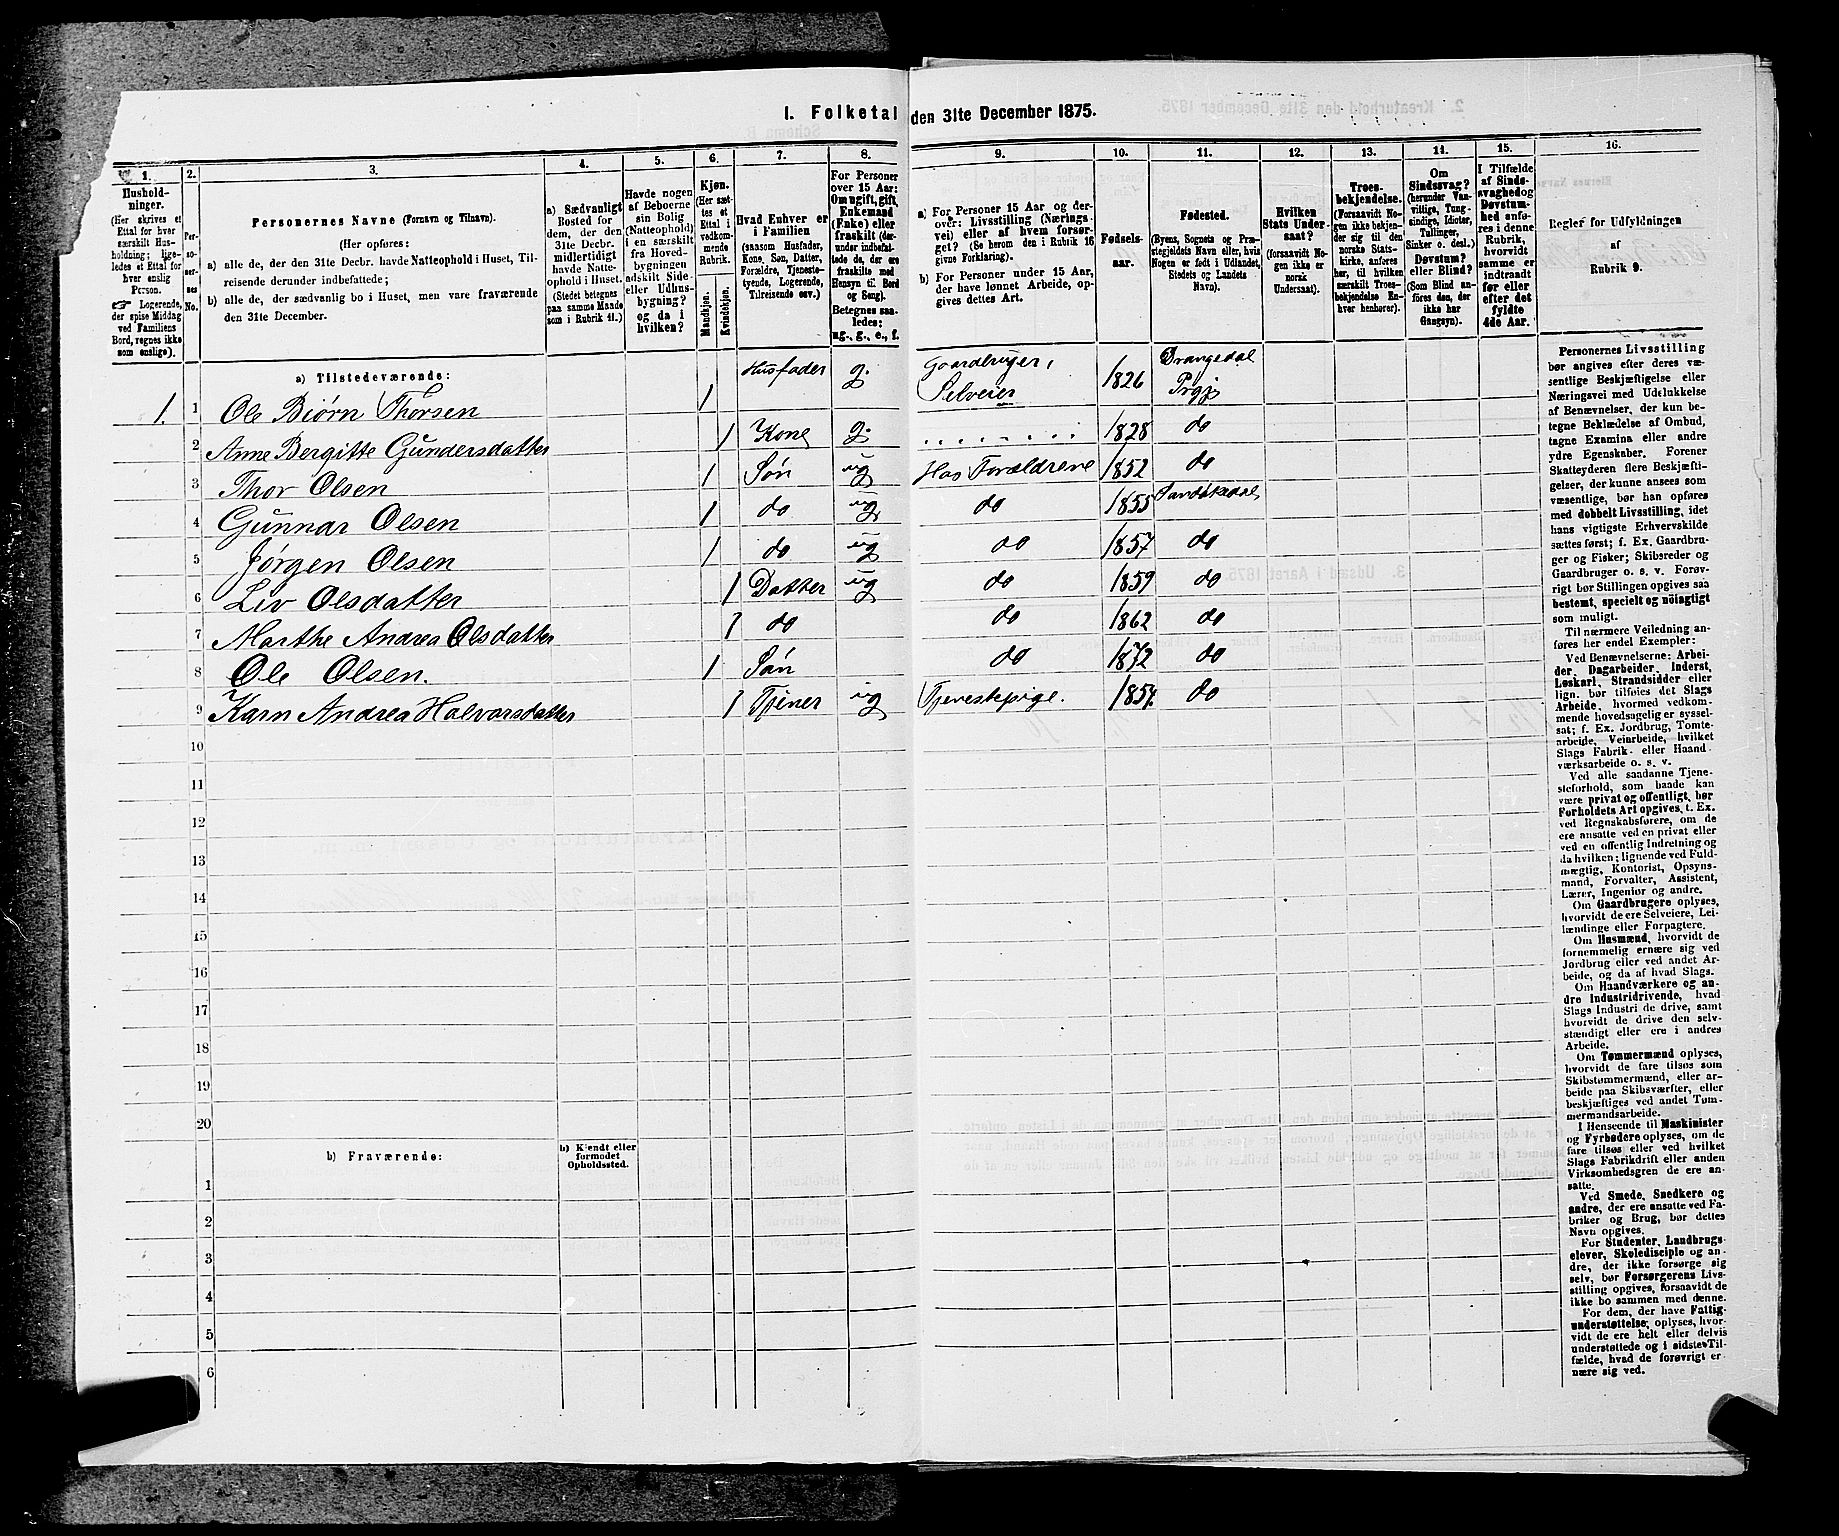 I. Folketal den 31te December 1875.
1. 2. 3. 4. 5. 6. 7. 8. 9. 10. 11. 12. 13. 14. 15. 16.
Hushold-
ninger.
(Her skrives et
Ettal for hver
særskilt Hus-
holdning; lige-
ledes et Ettal for
hver enslig
Person.
☞ Logerende,
der spise Middag
ved Familiens
Bord, regnes ikke
som enslige).
Per-
so-
ner-
nes
No.
Personernes Navne (Fornavn og Tilnavn).
(Her opføres:
a) alle de, der den 31te Decbr. havde Natteophold i Huset, Til-
reisende derunder indbefattede;
b) alle de, der sædvanlig bo i Huset, men vare fraværende
den 31te December.
a) Sædvanligt
Bosted for
dem, der den
31te Decbr.
midlertidigt
havde Natte-
ophold i Huset.
(Stedet betegnes
paa samme Maade
som i Rubrik 11.)
Havde nogen
af Beboerne
sin Bolig
(Natteophold)
i en særskilt
fra Hoved-
bygningen
adskilt Side-
eller Udhus-
bygning?
og da i
hvilken?
Kjøn.
(Her sæt-
tes et
Ettal i
vedkom-
mende
Rubrik.
Mandkjøn.
Kvindekjøn.
Hvad Enhver er
i Familien
(saasom Husfader,
Kone, Søn, Datter,
Forældre, Tjeneste-
tyende, Logerende,
Tilreisende osv.)
For Personer
over 15 Aar:
Om ugift, gift,
Enkemand
(Enke) eller
fraskilt (der-
under indbefat-
tede de, der ere
fraskilte med
Hensyn til Bord
og Seng).
Betegnes saa-
ledes:
ug., g., e., f.
a) For Personer 15 Aar og der-
over: Livsstilling (Nærings-
vei) eller af hvem forsør-
get? (Se herom den i Rubrik 16
givne Forklaring).
b) For Personer under 15 Aar,
der have lønnet Arbeide, op-
gives dettes Art.
Fødsels-
aar.
Fødested.
(Byens, Sognets og Præ-
stegjeldets Navn eller, hvis
Nogen er født i Udlandet,
Stedets og Landets
Navn).
Hvilken
Stats Under-
saat?
(forsaavidt No-
gen ikke er
norsk
Undersaat).
Troes-
bekjendelse.
(Forsaavidt No-
gen ikke bekjen-
der sig til den
norske Stats-
kirke, anføres
her, til hvilken
særskilt Troes-
bekjendelse En-
hver henhører).
Om
Sindssvag?
(herunder Van-
vittige, Tung-
sindige, Idioter,
Tullinger,
Sinker o. desl.)
Døvstum?
eller Blind?
(Som Blind an-
føres den, der
ikke har
Gangsyn).
I Tilfælde
af Sinds-
svaghed og
Døvstum-
hed anfø-
res i denne
Rubrik,
hvorvidt
samme er
indtraadt
før eller
efter det
fyldte
4de Aar.
Regler for Udfyldningen
af
Rubrik 9.
a) Tilstedeværende:
1. 1 Ole Biørn Thorsen 1 Husfader g. Gaardbruger, Selveier 1826 Drangedal Prgj
2 Anne Bergitte Gundersdatter 1 Kone g. ........ 1828 do
3 Thor Olsen 1 Søn ug Hos Forældrene 1852 do
4 Gunnar Olsen 1 do ug do 1855 Sandøkedal
5 Jørgen Olsen 1 do ug do 1857 do
6 Liv Olsdatter 1 Datter ug do 1859 do
7 Marthe Andrea Olsdatter 1 do do 1862 do
8 Ole Olsen. 1 Søn do 1872 do
9 Karn Andrea Halvorsdatter 1 Tjener ug Tjenestepige. 1854. do
10
11
12
13
14
15
16
17
18
19
20
b) Fraværende:
b) Kjendt eller
formodet
Opholdssted.
1
2
3
4
5
6
Personernes Livsstilling
bør angives efter deres væ-
sentlige Beskjæftigelse eller
Næringsvei med Udelukkelse
af Benævnelser, der kun be-
tegne Beklædelse af Ombud,
tagne Examina eller andre
ydre Egenskaber. Forener
Skatteyderen flere Beskjæfti-
gelser, der kunne ansees som
væsentlige, bør han opføres
med dobbelt Livsstilling, idet
hans vigtigste Erhvervskilde
sættes først; f. Ex. Gaardbru-
ger og Fisker; Skibsreder og
Gaardbruger o. s. v. Forøv-
rigt bør Stillingen opgives saa
bestemt, specielt og nöiagtigt
som muligt.
Til nærmere Veiledning an-
føres her endel Exempler:
Ved Benævnelserne: Arbei-
der, Dagarbeider, Inderst,
Løskarl, Strandsidder eller
lign. bør tilføies det Slags
Arbeide, hvormed vedkom-
mende hovedsagelig er syssel-
sat; f. Ex. Jordbrug, Tomte-
arbeide, Veiarbeide, hvilket
Slags Fabrik- eller Haand-
værksarbeide o. s. v.
Ved alle saadanne Tjene-
steforhold, som baade kan
være privat og offentligt, bør
Forholdets Art opgives, t. Ex.
ved Regnskabsførere, om de
ere ansatte ved en privat eller
ved en offentlig Indretning og
da hvilken; lignende ved Fuld-
mægtig, Kontorist, Opsyns-
mand, Forvalter, Assistent,
Lærer, Ingeniør og andre.
Om Gaardbrugere oplyses,
hvorvidt de ere Selveiere, Lei-
lændinge eller Forpagtere.
Om Husmænd, hvorvidt de
fornemmelig ernære sig ved
Jordbrug eller ved andet Ar-
beide, og da af hvad Slags.
Om Haandværkere og an-
dre Industridrivende, hvad
Slags Industri de drive, samt
hvorvidt de drive den selv-
stændigt eller ere i andres
Arbeide.
Om Tømmermænd oplyses,
hvorvidt de fare tilsøs som
Skibstømmermænd, eller ar-
beide paa Skibsværfter, eller
beskjæftiges ved andet Tøm-
mermandsarbeide.
I Henseende til Maskinister
og Fyrbødere oplyses, om de
fare tilsøs eller ved hvilket
Slags Fabrikdrift eller anden
Virksomhedsgren de ere an-
satte.
Ved Smede, Snedkere og
andre, der ere ansatte ved Fa-
briker og Brug, bør dettes
Navn opgives.
For Studenter, Landbrugs-
elever, Skoledisciple og an-
dre, der ikke forsørge sig
selv, bør Forsørgerens Livs-
stilling opgives, forsaavidt de
ikke bo sammen med denne.
For dem, der have Fattig-
understøttelse, oplyses, hvor-
vidt de ere helt eller delvis
understøttede og i sidste Til-
fælde, hvad de forøvrigt er-
nære sig ved.